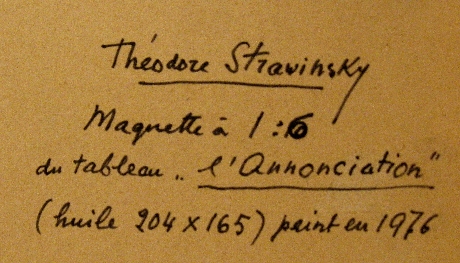 Théodore Strawinsky
Maquette à 1:6
du tableau „l'Annonciation"
(huile 204 x 165) peint en 1976